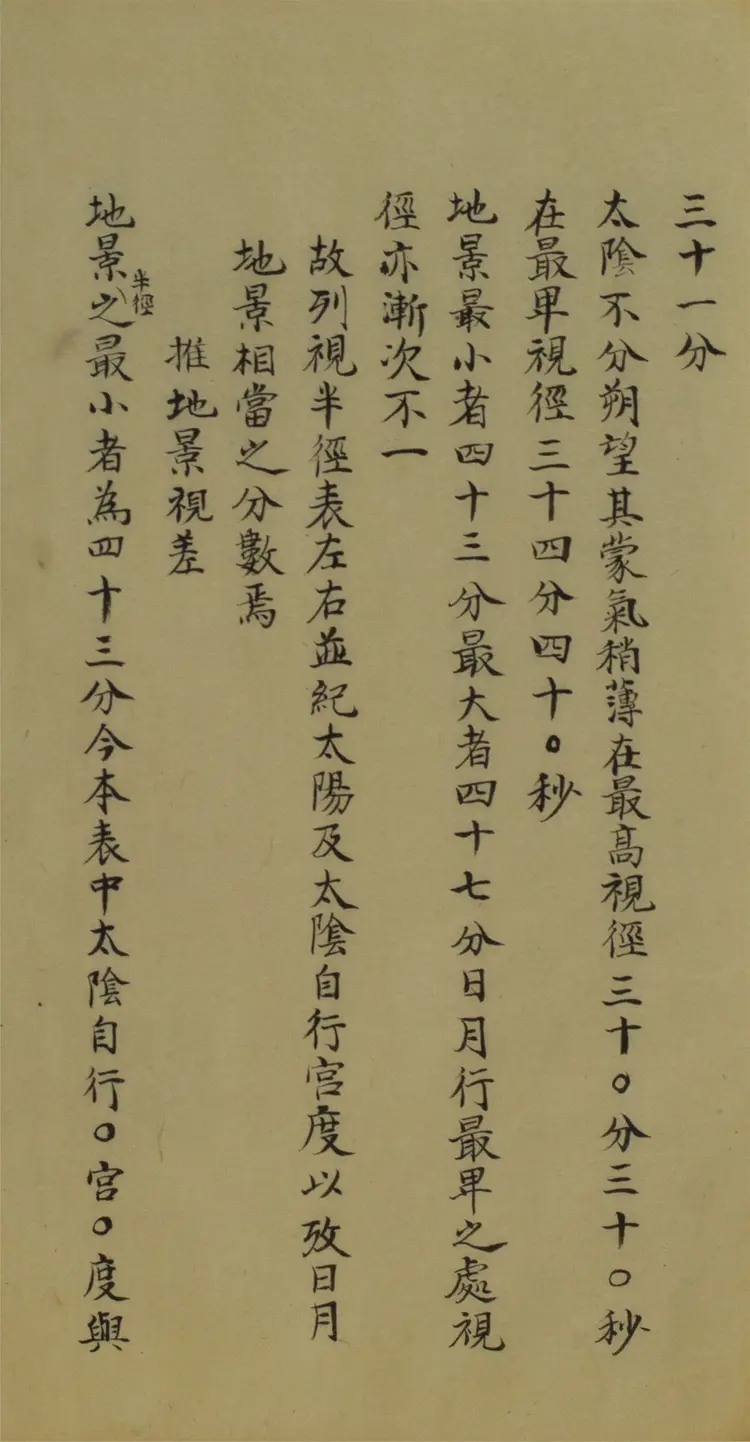 三十一分
太陰不分朔望其蒙氣稍薄在最高視徑三十〇分三十〇秒
在最卑視徑三十四分四十〇秒
地景最小者四十三分最大者四十七分日月行最卑之處視
徑亦漸次不一
故列視半徑表左右並紀太陽及太陰自行宮度以攷日月
地景相當之分數焉
推地景視差
地景半徑之最小者為四十三分今本表中太陰自行〇宮〇度與